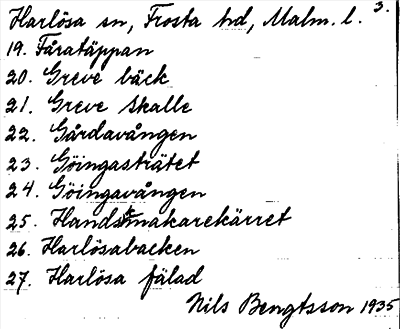 Harlösa sn, Frosta hd, Malm. l. 3.
19. Fåratäppan
20. Greve bäck
21. Greve skalle
22. Gårdavången
23. Göingasträtet
24. Göingavången
25. Handskmakarekärret
26. Harlösabacken
27. Harlösa fälad
Nils Bengtsson 1935